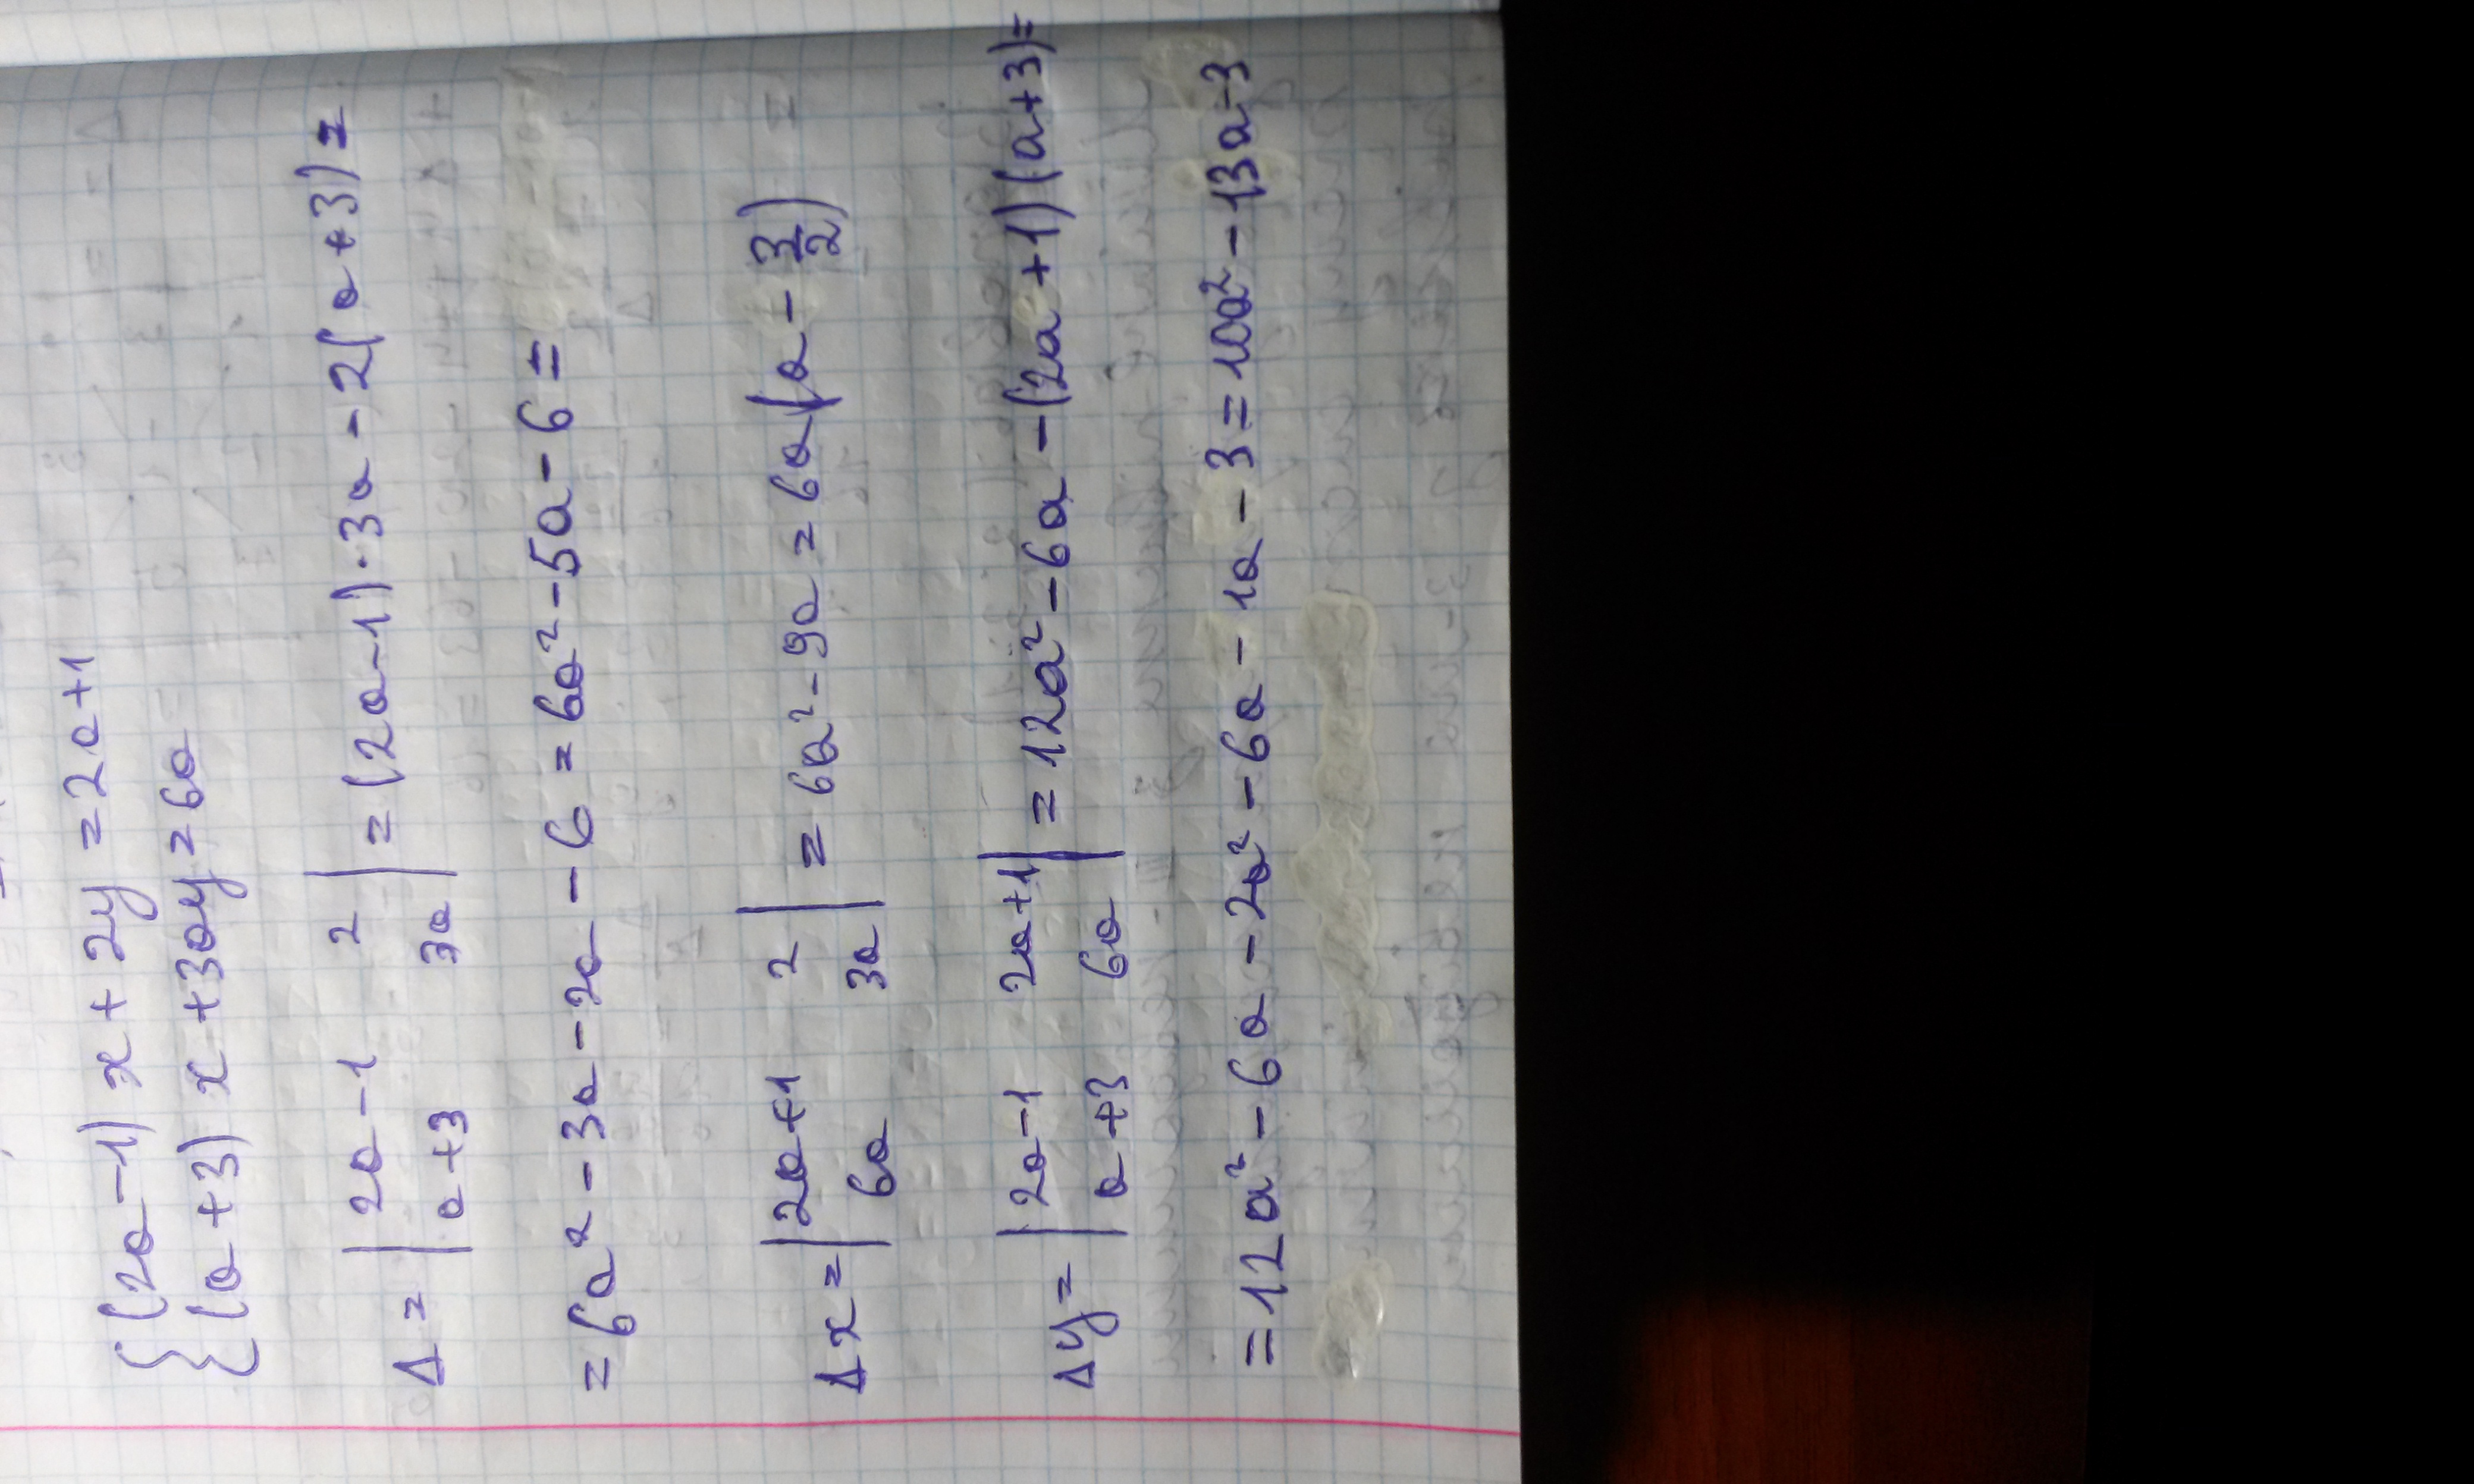 {(2a-1)x+2y=2a+1
{(a+3)x+3ay=6a
Δ = |2a-1 2| = (2a-1)·3a-2(a+3)=
|a+3 3a|
=6a²-3a-2a-6=6a²-5a-6=
Δx = |2a+1 2| = 6a²-9a=6a(a-3/2)
|6a 3a|
Δy = |2a-1 2a+1| = 12a²-6a-(2a+1)(a+3)=
|a+3 6a|
=12a²-6a-2a²-6a-1a-3=10a²-13a-3